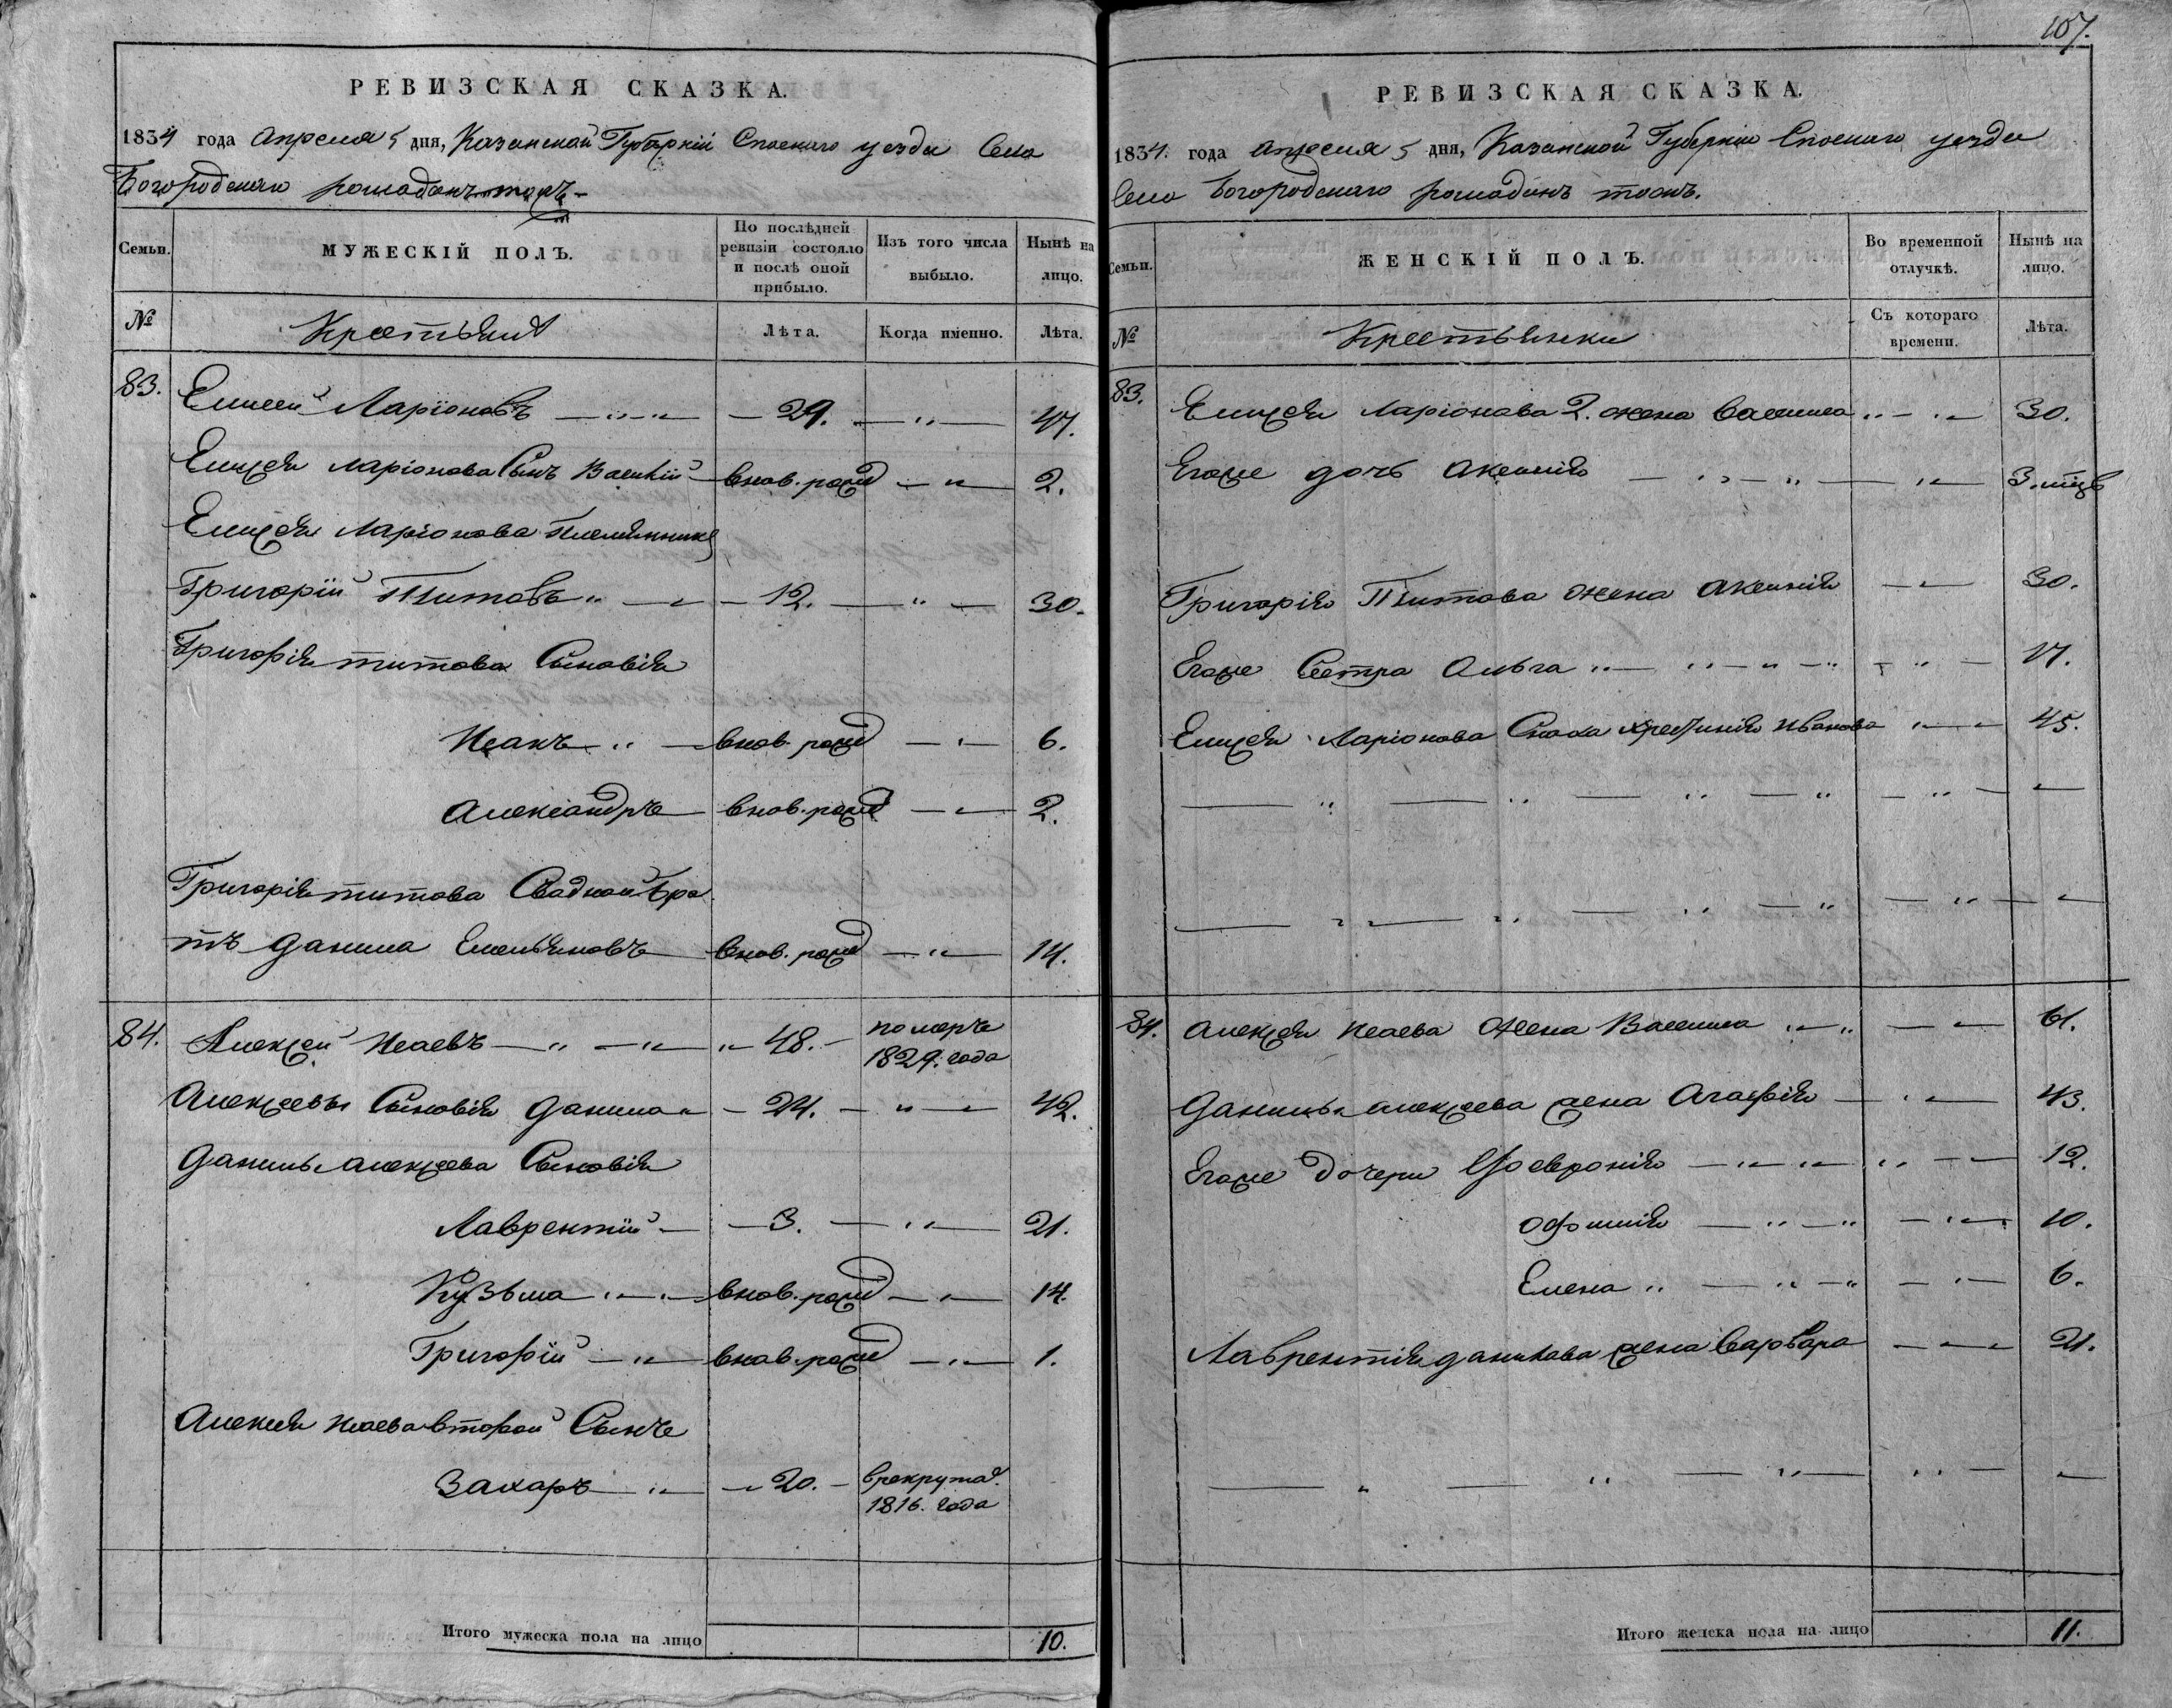 РЕВИЗСКАЯ СКАЗКА.
1834 года Апреля 5 дня, Казанской Губернiи Спаского уезда Села
Богородскаго
Семьи.
МУЖЕСКІЙ ПОЛЪ.
По послѣдней ревизіи состояло и послѣ оной прибыло.
Изъ того числа выбыло.
Нынѣ на лицо.
№
Крестьяне
Лѣта.
Когда именно.
Лѣта.
83. Елисей Ларiоновъ 29. 47.
Елисея Ларiонова Сынъ Василiй внов. рожд 2.
Елисея Ларiонова Племянникъ
Григорiй Титовъ 12. 30.
Григорiя титова Сыновiя
Исакъ внов. рожд 6.
Александръ внов. рожд 2.
Григорiя титова Сводной бра
тъ Данила Емельяновъ внов. рожд 14.
84. Алексей Исаевъ 48. померъ 1829. года
Алексеевы Сыновiя Данила 24. 42.
Данилы алексеева Сыновiя
Лаврентiй 3. 21.
Кузьма внов. рожд 14.
Григорiй внов. рожд 1.
Алексея Исаева второй Сынъ
Захаръ 20. в рекрута 1816. года
Итого мужеска пола на лицо 10.
107.
РЕВИЗСКАЯ СКАЗКА.
1834. года Апреля 5 дня, Казанской Губернiи Спаского уезда
Села Богородскаго
Семьи.
ЖЕНСКІЙ ПОЛЪ.
Во временной отлучкѣ.
Нынѣ на лицо.
№
Крестьянки
Съ котораго времени.
Лѣта.
83. Елисея Ларiонова 2. жена Василиса 30.
Егоже дочь Аксинiя 3. мцъ
Григорiя Титова жена Аксинiя 30.
Егоже Сестра Ольга 17.
Елисея Ларiонова Сноха Иванова 45.
84. Алексея Исаева жена Василиса 61.
Данилы алексеева жена Агафiя 43.
Егоже дочери Февронiя 12.
Офимiя 10.
Елена 6.
Лаврентiя данилова жена Варвара 21.
Итого женска пола на лицо 11.